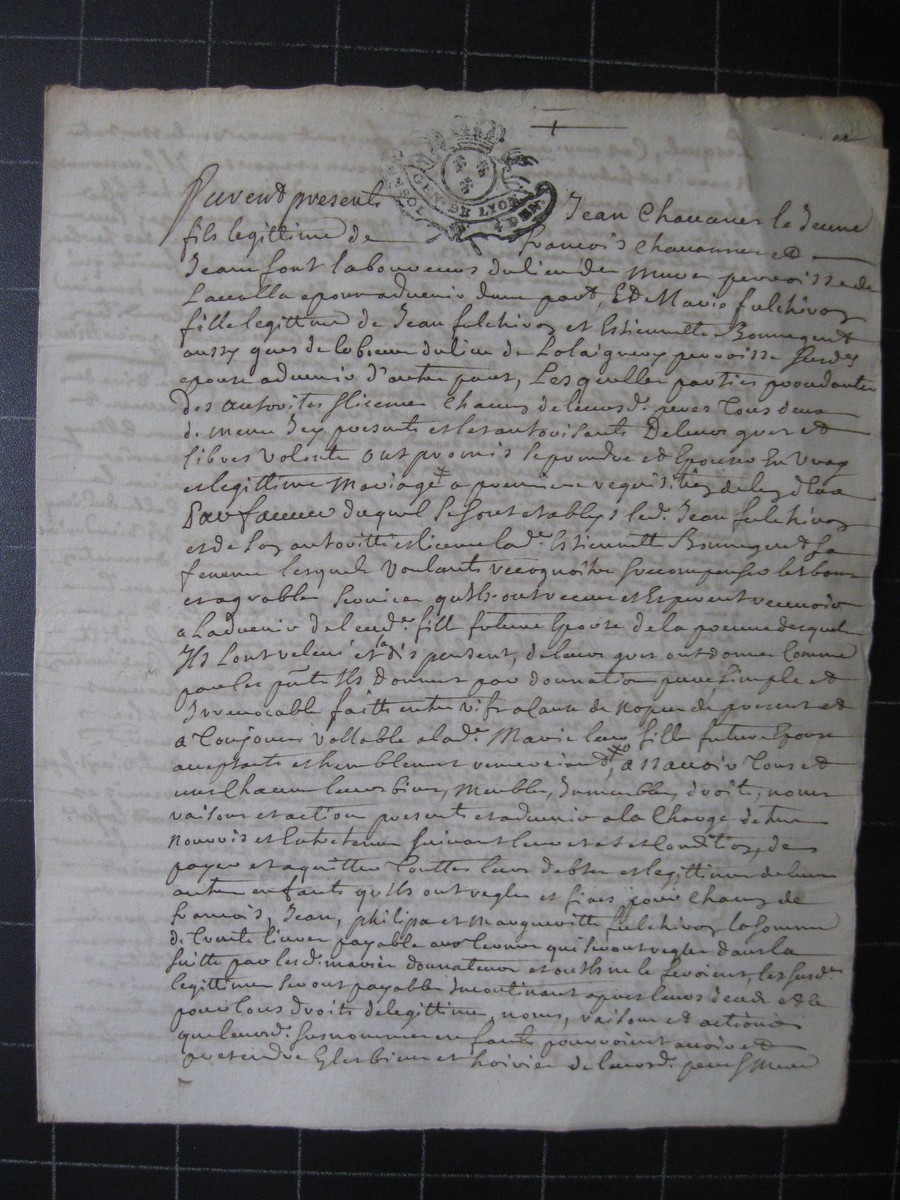 GEN. DE LYON
Furent presents Jean Chavanes le Jeune
fils legittime de francois chavannes et
Jean font laboureurs du lieu de paroisse de
Lavalla epour advenir dune part, Et Marie fulchiron
fille legittime de Jean fulchiron et Estiennette Bonnegent
aussy de labeur du lieu de paroisse susdes
epouse advenir d'autre part, Lesquelles parties procedantes
des authorités licence chacuns de leurs d. peres tous deux
de mesme Icy presents et les authorisants De leur gres et
libres volonte ont promis se prendre et Epouser En vray
et legittime Mariage a premiere requisition de lun deux
En faveur duquel se sont establys led. Jean fulchiron
et de son authoritté et licence lad. Estiennette Bonnegent sa
femme lesquels voulants recognoitre recompenser les bons
et agreables services quils ont receus et Esperent recevoir
a Ladvenir de leurd. fille future Epouse de la preuve desquels
Ils Lont relevé et la dispensent, de leurs gres ont donner comme
par les pntes Ils donnent par donnation pure simple et
Irrevocable faitte entre vifs a cause de noces de present et
a Toujours vallable a lad. Marie leur fille future Epouse
acceptante et humblement remerciante, a scavoir Tous et
uns chacuns leurs biens, meubles, Immeubles, droits, noms
raisons et actions presents et advenir a la charge detre
nourris et Entretenus suivant leur etat et condition, de
payer et aquitter Touttes leurs debtes et legittimes de leurs
autres enfants quils ont regles et fixes pour chacuns de
francois, Jean, philipe et Margueritte fulchiron la somme
de Trente livres payable aux termes qui seront regles dans la
suitte par lesd. mariés donnateurs et ou Ils ne le feroient, les susd.
legittimes seront payables Incontinant apres leurs deces et ce
pour tous droits de legittime, noms, raisons et actions
que leursd. susnommes enfants pourroient avoir et
pretendre Es les biens et hoirie de leursd. pere et mere